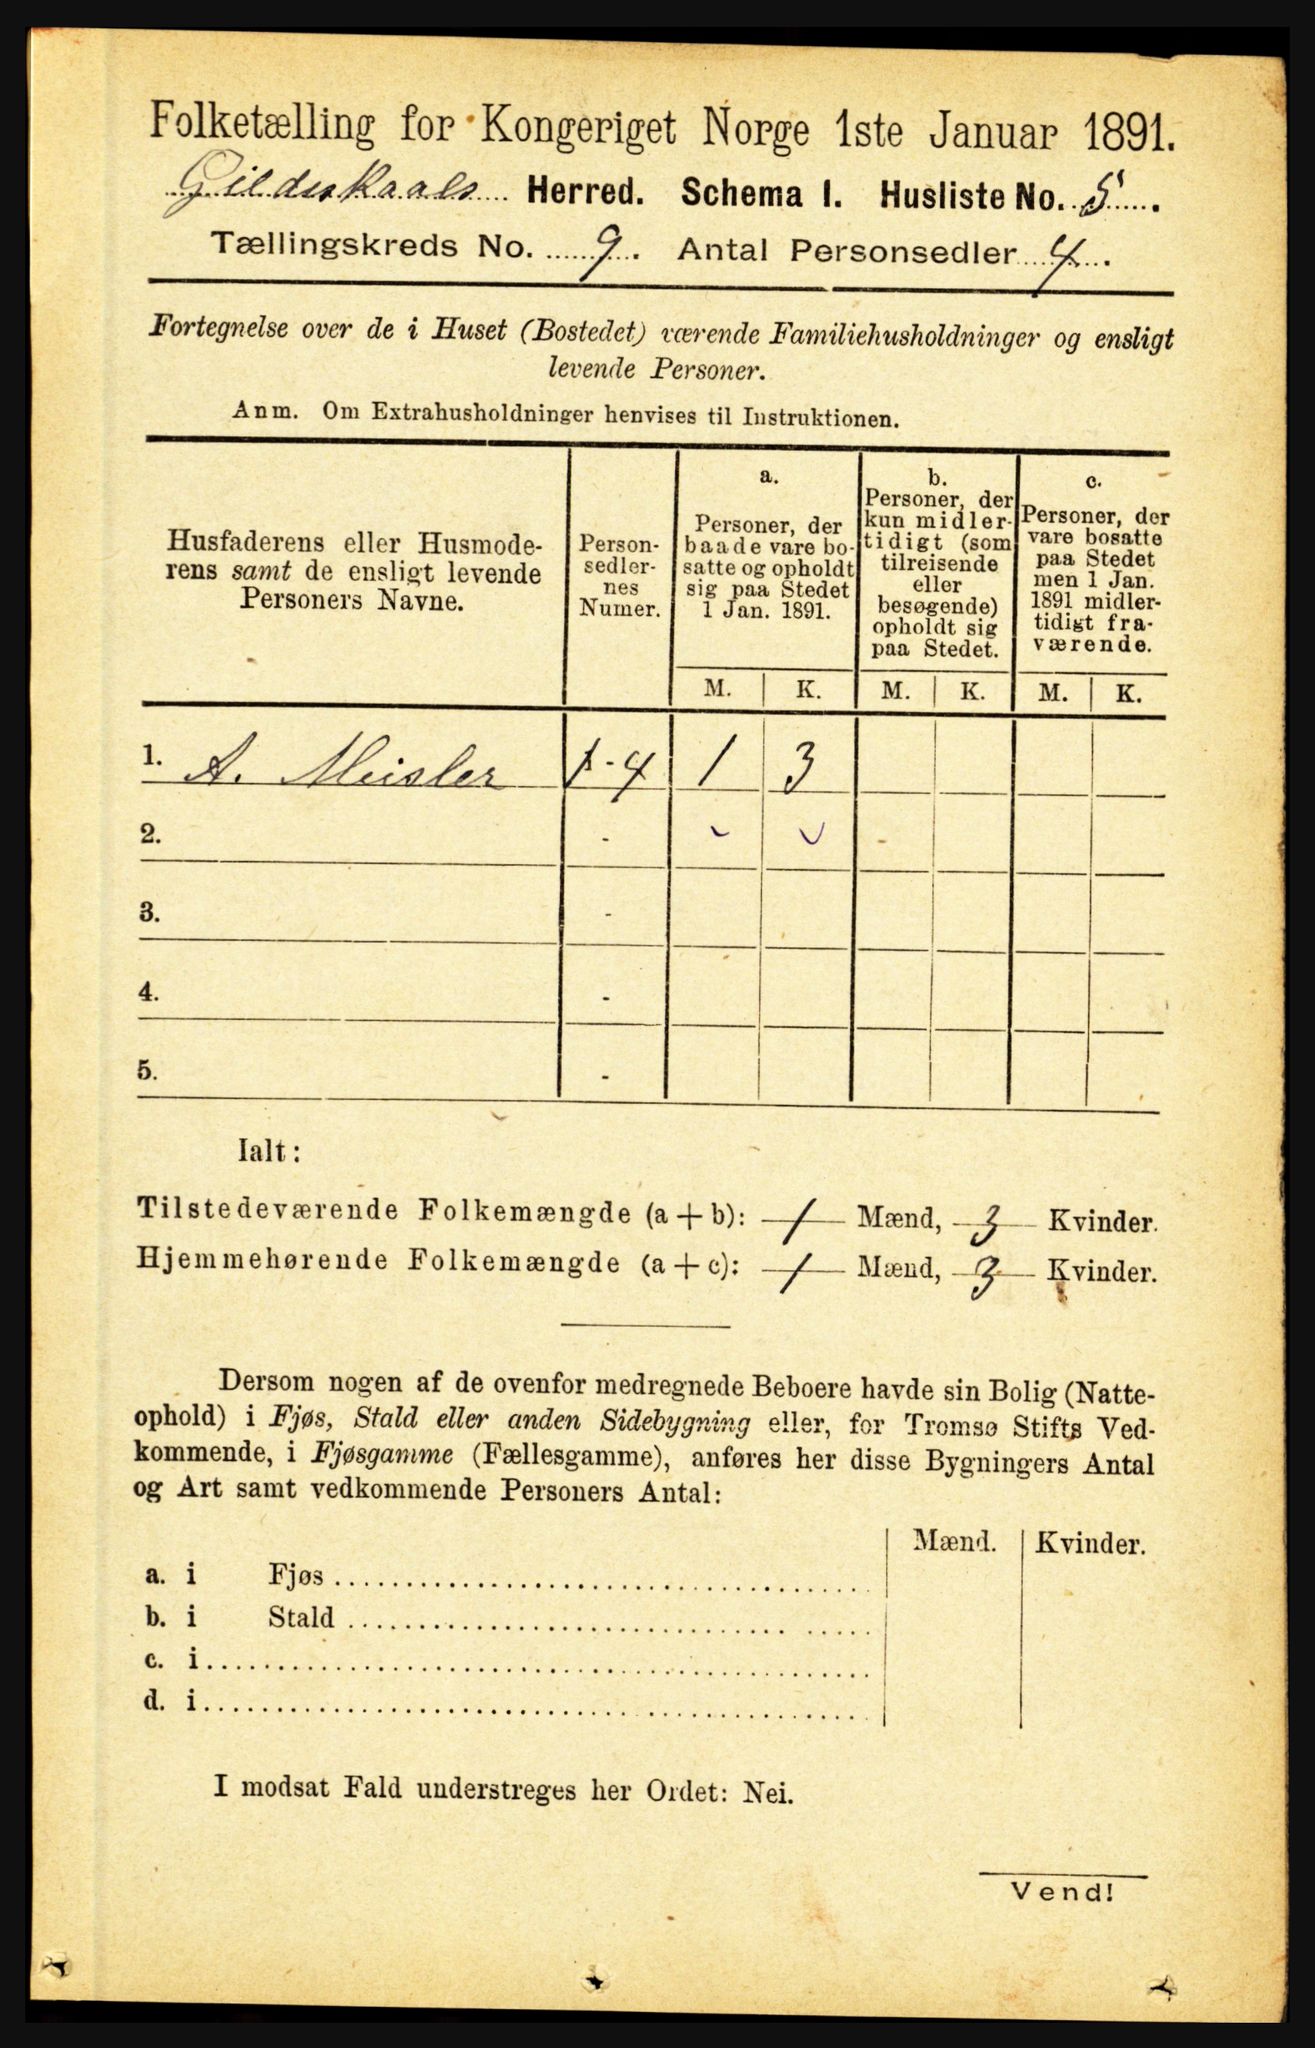 Folketælling for Kongeriget Norge 1ste Januar 1891.
Gildeskaals Herred. Schema I. Husliste No. 5.
Tællingskreds No. 9. Antal Personsedler 4.
Fortegnelse over de i Huset (Bostedet) værende Familiehusholdninger og ensligt
levende Personer.
Anm. Om Extrahusholdninger henvises til Instruktionen.
Husfaderens eller Husmode-
rens samt de ensligt levende
Personers Navne.
Person-
sedler-
nes
Numer.
a.
Personer, der
baade vare bo-
satte og opholdt
sig paa Stedet
1 Jan. 1891.
b.
Personer, der
kun midler-
tidigt (som
tilreisende
eller
besøgende)
opholdt sig
paa Stedet.
c.
Personer, der
vare bosatte
paa Stedet
men 1 Jan.
1891 midler-
tidigt fra-
værende.
M. K. M. K. M. K.
1. A. Meisler 1-4 1 3
2. -
3. -
4. -
5. -
Ialt:
Tilstedeværende Folkemængde (a + b): 1 Mænd, 3 Kvinder.
Hjemmehørende Folkemængde (a + c): 1 Mænd, 3 Kvinder.
Dersom nogen af de ovenfor medregnede Beboere havde sin Bolig (Natte-
ophold) i Fjøs, Stald eller anden Sidebygning eller, for Tromsø Stifts Ved-
kommende, i Fjøsgamme (Fællesgamme), anføres her disse Bygningers Antal
og Art samt vedkommende Personers Antal:
Mænd. Kvinder.
a. i Fjøs
b. i Stald
c. i
d. i
I modsat Fald understreges her Ordet: Nei.
Vend!